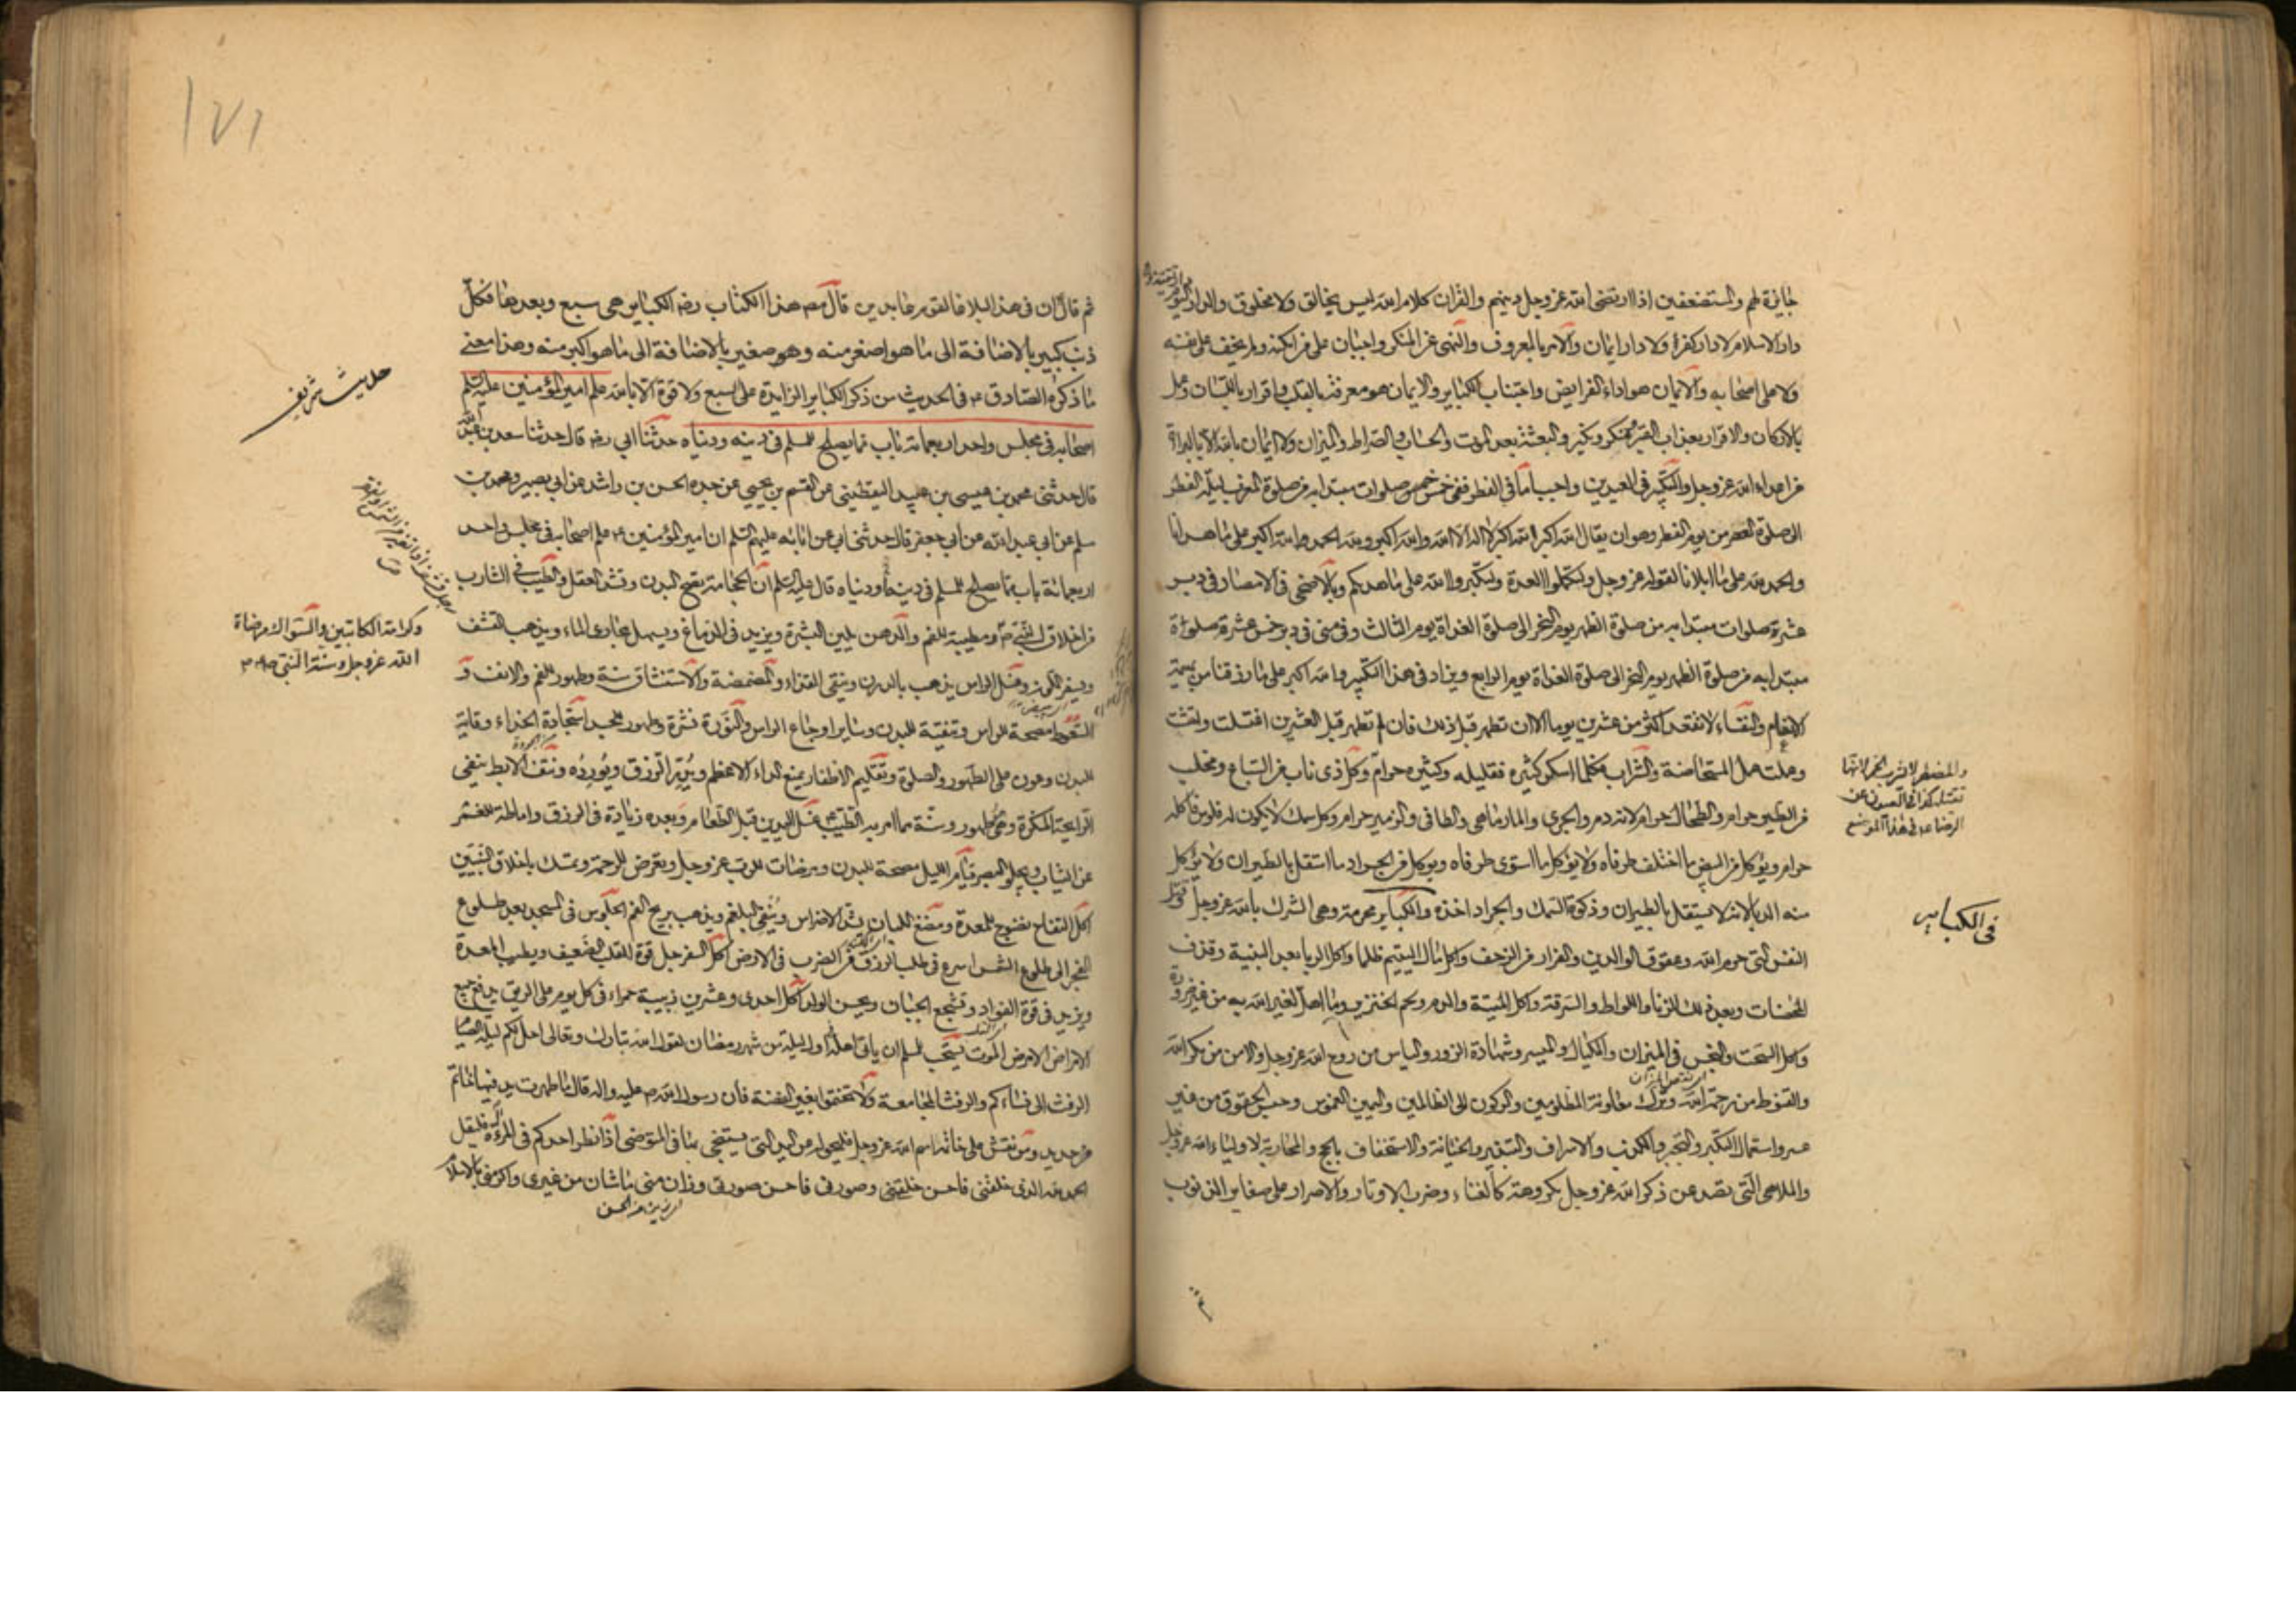 جائزة لهم والمستضعفين اذا ارتضى الله عز وجل دينهم والقران كلام الله ليس بخالق ولا مخلوق والدار اليوم
دار الاسلام لا دار كفر ولا دار ايمان والامر بالمعروف والنهى عن المنكر واجبان على من امكنه ولم يخف على نفسه
ولا على اصحابه والايمان هو اداء الفرايض واجتناب الكباير والايمان هو معرفة بالقلب واقرار باللسان وعمل
بالاركان والاقرار بعذاب القبر ومنكر ونكير والبعث بعد الموت والحساب والصراط والميزان ولا ايمان بالله الا بالبراءة
من اعداء الله عز وجل والتكبير فى العيدين واجب اما فى الفطر ففى خمس صلوات مبتدا به من صلوة المغرب ليلة الفطر
الى صلوة العصر من يوم الفطر وهو ان يقال الله اكبر الله اكبر لا اله الا الله والله اكبر ولله الحمد الله اكبر على ما هدانا
والحمد لله على ما ابلانا لقوله عز وجل ولتكملوا العدة ولتكبروا الله على ما هديكم وبالاضحى فى الامصار فى دبر
عشرة صلوات مبتدا به من صلوة الظهر يوم النحر الى صلوة الغداة يوم الثالث وفى منى فى دبر خمس عشرة صلوة
مبتدا به من صلوة الظهر يوم النحر الى صلوة الغداة يوم الرابع ويزاد فى هذا التكبير والله اكبر على ما رزقنا من بهيمة
الانعام والنفساء لا تقعد اكثر من عشرين يوما الا ان تطهر قبل ذلك فان لم تطهر قبل العشرين اغتسلت واحتشت
وعملت عمل المستحاضة والشراب فكلما اسكر كثيره فقليله وكثيره حرام وكل ذى ناب من السباع ومخلب
من الطير حرام والطحال حرام لانه دم والجرى والمارماهى والطافى والزمير حرام وكل سمك لا يكون له فلوس فاكله
حرام ويؤكل من البيض ما اختلف طرفاه ولا يؤكل ما استوى طرفاه ويوكل من الجراد ما استقل بالطيران ولا يؤكل
منه الدبا لانه لا يستقل بالطيران وذكوة السمك والجراد اخذه والكباير محرمة وهى الشرك بالله عز وجل وقتل
النفس التى حرم الله وعقوق الوالدين والفرار من الزحف واكل مال اليتيم ظلما واكل الربا بعد البينة وقذف
المحصنات وبعد ذلك الزنا واللواط والسرقة واكل الميتة والدم ولحم الخنزير وما اهل لغير الله به من غير ضرورة
واكل السحت والبخس فى الميزان والمكيال والميسر وشهادة الزور والياس من روح الله عز وجل والامن من مكر الله
والقنوط من رحمة الله وترك معاونة المظلومين والركون الى الظالمين واليمين الغموس وحبس الحقوق من غير
عسر واستعمال التكبر والتجبر والكذب والاسراف والتبذير والخيانة والاستخفاف بالحج والمحاربة لاولياء الله عز وجل
والملاهى التى تصد عن ذكر الله عز وجل مكروهة كالغناء وضرب الاوتار والاصرار على صغاير الذنوب
والمضطر لا يشرب الخمر لانها
تقتله كذا فى العيون عن
الرضا ع فى هذا الموضع
فى الكباير
١٧١
ثم قال ان فى هذا البلاغا لقوم عابدين قال مصـ هذا الكتاب رضـ الكباير هى سبع وبعدها فكل
ذنب كبير بالاضافة الى ما هو اصغر منه وهو صغير بالاضافة الى ما هو اكبر منه وهذا معنى
ما ذكره الصادق ع فى الحديث من ذكر الكباير الزايدة على السبع ولا قوة الا بالله علم امير المؤمنين عليه السلم
اصحابه فى مجلس واحد اربعماة باب مما يصلح للمسلم فى دينه ودنياه حدثنا ابى رضـ قال حدثنا سعد بن عبد الله
قال حدثنى محمد بن عيسى بن عبيد اليقطينى عن القسم بن يحيى عن جده الحسن بن راشد عن ابى بصير ومحمد بن
مسلم عن ابى عبد الله عن ابى جعفر قال حدثنى ابى عن ابائه عليهم السلم ان امير المؤمنين ع علم اصحابه فى مجلس واحد
اربعمائة باب مما يصلح للمسلم فى دينه ودنياه قال عليه السلم ان الحجامة تصح البدن وتشد العقل والطيب فى الشارب
من اخلاق النبى ص ومطيبة للفم والدهن يلين البشرة ويزيد فى الدماغ ويسهل مجارى الماء ويذهب القشف
ويسفر اللون وغسل الراس يذهب بالدرن وينقى القذاء والمضمضة والاستنشاق سنة وطهور للفم والانف و
السعوط مصحة للراس وتنقية للبدن وساير اوجاع الراس والنورة نشرة وطهور للجسد استجادة الحذاء وقاية
للبدن وعون على الطهور والصلوة وتقليم الاظفار يمنع الداء الاعظم ويدر الرزق ويورده ونتف الابط ينفى
الرايحة المنكرة وهو طهور وسنة مما امر به الطيب ع غسل اليدين قبل الطعام وبعده زيادة فى الرزق واماطة للغمر
عن الثياب ويجلو البصر قيام الليل مصحة للبدن ومرضات للرب عز وجل وتعرض للرحمة وتمسك باخلاق النبيين
اكل التفاح نضوح للمعدة ومضغ اللبان يشد الاضراس وينفى البلغم ويذهب بريح الفم الجلوس فى المسجد بعد طلوع
الفجر الى طلوع الشمس اسرع فى طلب الرزق من الضرب فى الارض اكل السفرجل قوة للقلب الضعيف ويطيب المعدة
ويزيد فى قوة الفواد ويشجع الجبان ويحسن الولد اكل احدى وعشرين زبيبة حمراء فى كل يوم على الريق يدفع جميع
الامراض الا مرض الموت يستحب للمسلم ان ياتى اهله اول ليلة من شهر رمضان لقول الله تبارك وتعالى احل لكم ليلة الصيام
الرفث الى نسائكم والرفث المجامعة ولا تختموا بغير الفضة فان رسول الله ص عليه واله قال ما طهرت يد فيها خاتم
من حديد ومن نقش على خاتمه اسم الله عز وجل فليحوله عن اليد التى يستنجى بها فى المتوضى اذا نظر احدكم فى المراة فليقل
الحمد لله الذى خلقنى فاحسن خلقتى وصورنى فاحسن صورتى وزان منى ما شان من غيرى واكرمنى بالاسلام
حديث شريف
وكرامة الكاتبين والسواك مرضاة
الله عز وجل وسنة النبى ص